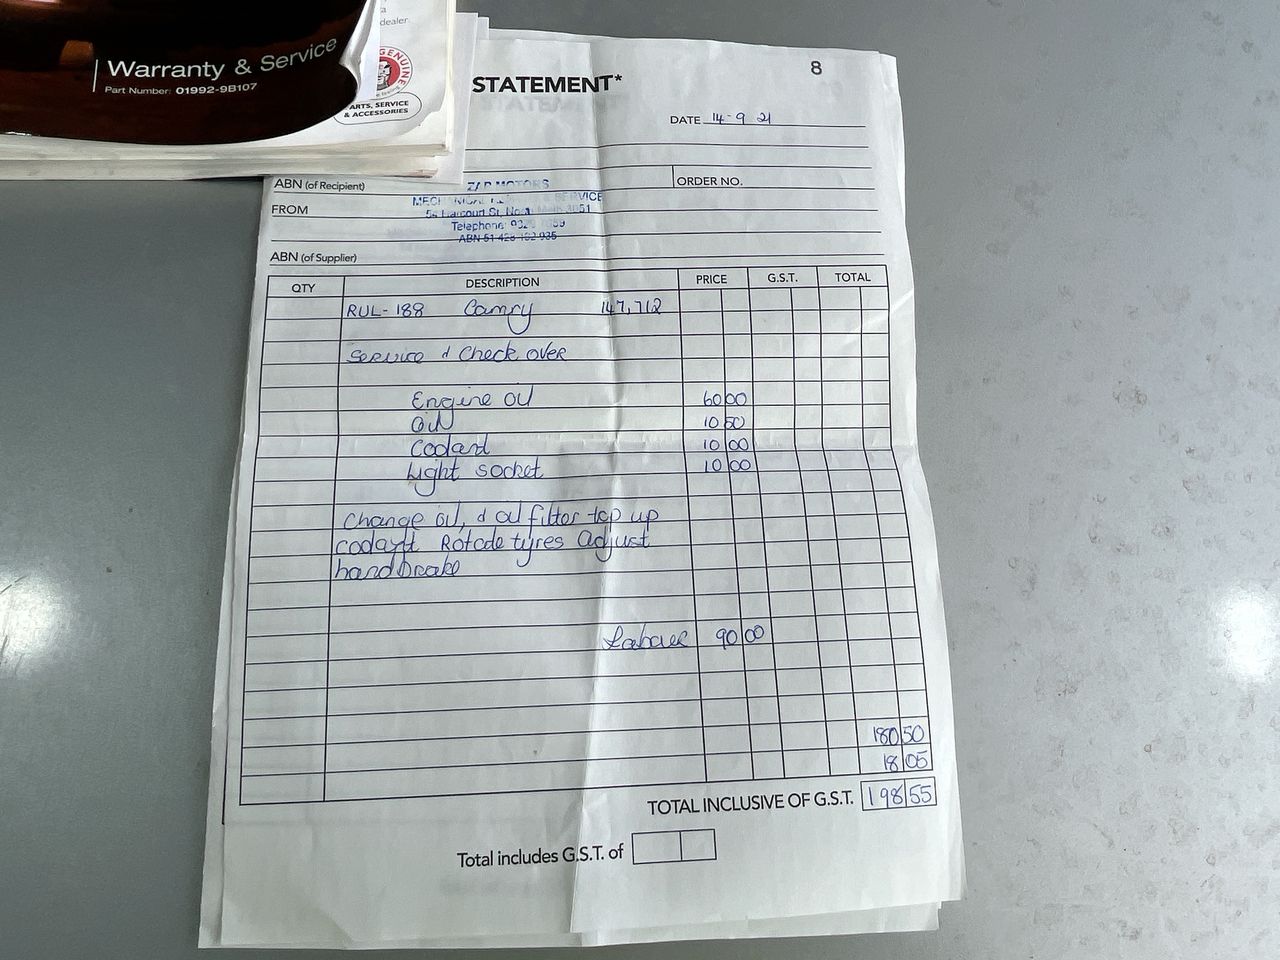 a
dealer.
Warranty & Service
Part Number: 01992-9B107
GENUINE
ARTS, SERVICE
& ACCESSORIES
8
STATEMENT*
DATE 14-9 21
ABN (of Recipient)
ORDER NO.
MOTORS
SERVICE
FROM
Harcourt St,
3051
Telephone:
ABN 51 935
ABN (of Supplier)
QTY DESCRIPTION PRICE G.S.T. TOTAL
RUL-188 Camry 147,712
Service & Check over
Engine oil 60 00
Oil 10 50
Coolant 10 00
Light socket 10 00
Change oil, & oil filter top up
coolant Rotate tyres Adjust
handbrake
Labour 90 00
180 50
18 05
TOTAL INCLUSIVE OF G.S.T. 198 55
Total includes G.S.T. of